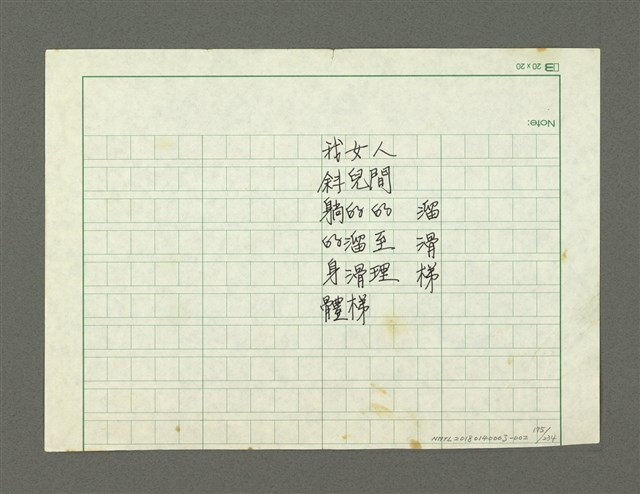 溜滑梯
人間的至理
女兒的溜滑梯
我斜躺的身體
Note:
20 x 20
NMTL20180140003-002
175/234